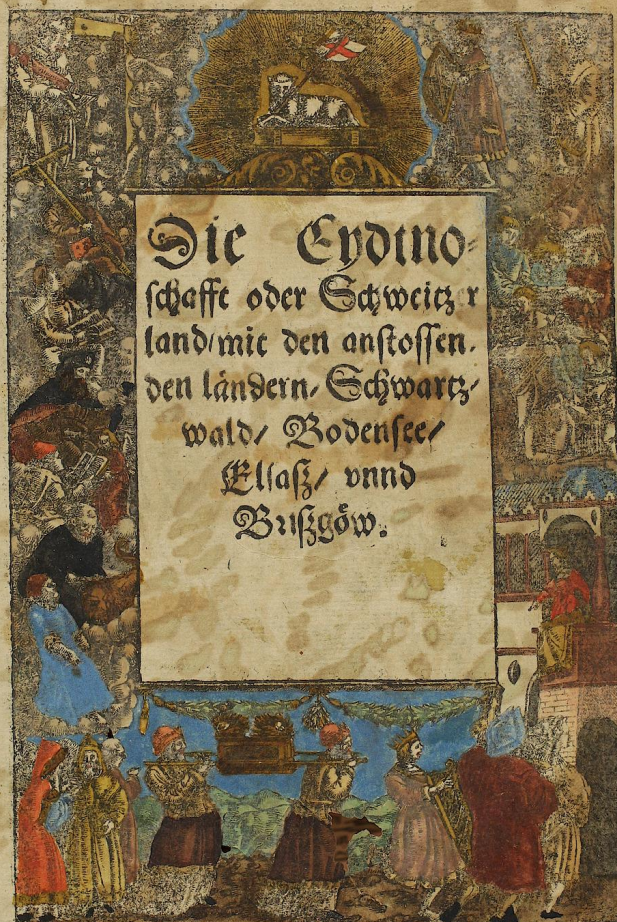 Die Eydtno-
schafft oder Schweitzer
land/ mit den anstossen-
den ländern/ Schwartz-
wald/ Bodensee/
Elsasz/ vnnd
Briszgöw.